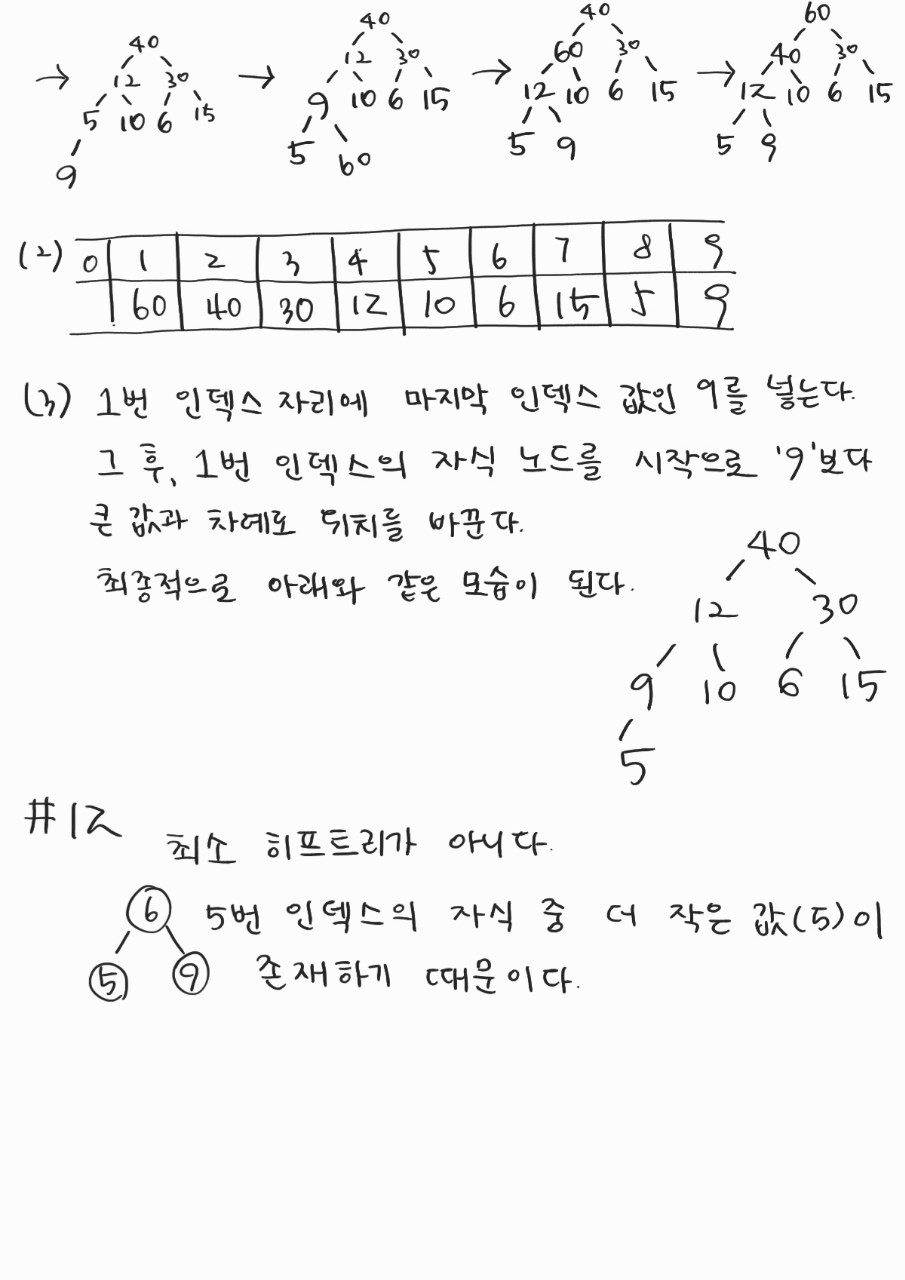 40 40 40 60
→ 12 30 → 12 30 → 60 30 → 40 30
5 10 6 15 9 10 6 15 12 10 6 15 12 10 6 15
9 5 60 5 9 5 9
(2) 0 1 2 3 4 5 6 7 8 9
60 40 30 12 10 6 15 5 9
(3) 1번 인덱스 자리에 마지막 인덱스 값인 9를 넣는다.
그 후, 1번 인덱스의 자식 노드를 시작으로 '9'보다
큰 값과 차례로 위치를 바꾼다.
최종적으로 아래와 같은 모습이 된다.
40
12 30
9 10 6 15
5
#12
최소 히프트리가 아니다.
6 5번 인덱스의 자식 중 더 작은 값(5)이
5 9 존재하기 때문이다.